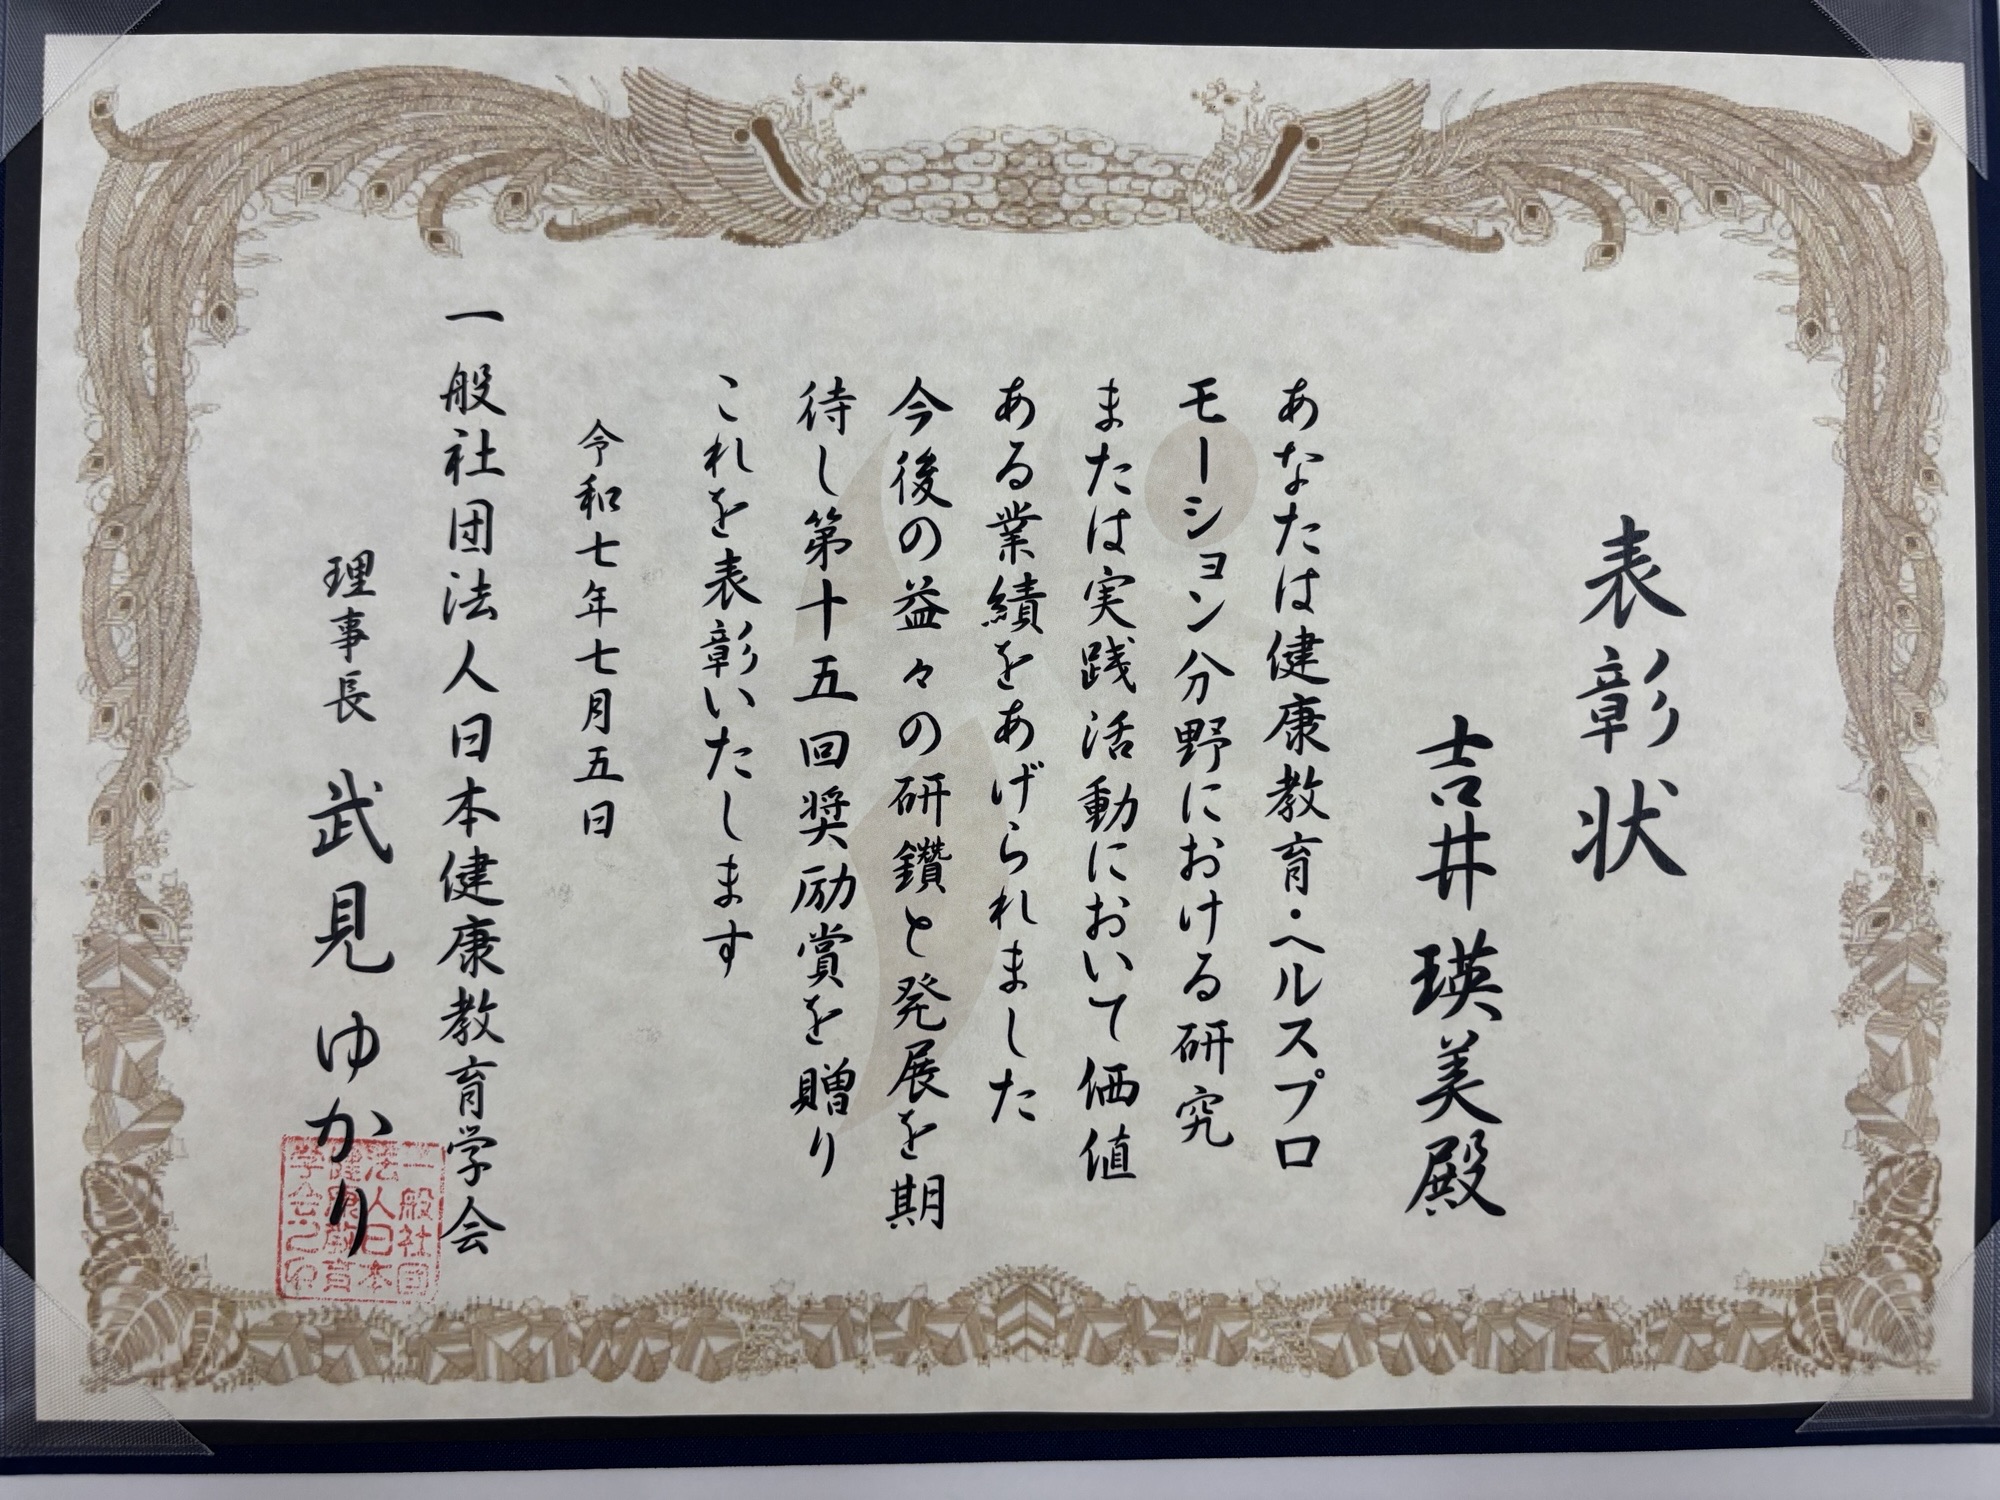 表彰状
吉井 瑛美殿
あなたは健康教育・ヘルスプロ
モーション分野における研究
または実践活動において価値
ある業績をあげられました
今後の益々の研鑽と発展を期
待し第十五回奨励賞を贈り
これを表彰いたします
令和七年七月五日
一般社団法人日本健康教育学会
理事長 武見ゆかり
一般社団
法人日本
健康教育
学会之印